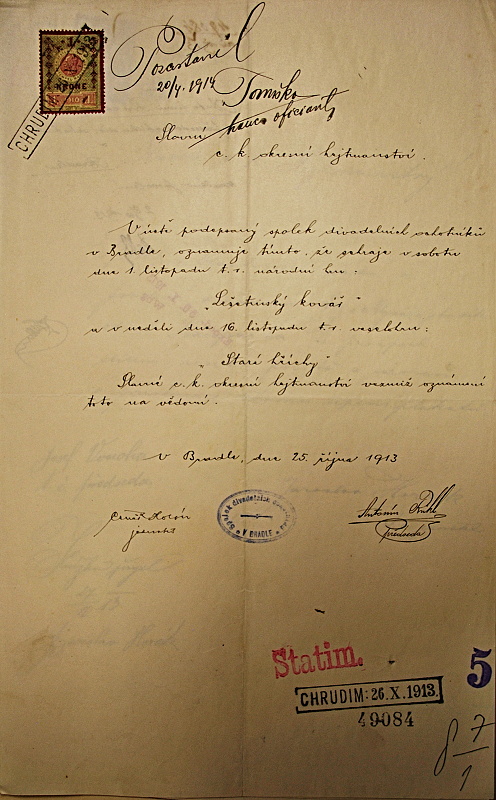 KRONE
1910
CHRUDIM
Pozastavil
20/4. 1914
Tomiško
kanc. oficiant
Slavné
c. k. okresní hejtmanství.
V úctě podepsaný spolek divadelních ochotníků
v Bradle, oznamuje tímto, že sehraje v sobotu
dne 1. listopadu t. r. národní hru.
"Lešetínský kovář"
a v neděli dne 16. listopadu t. r. veselohru:
"Staré hříchy"
Slavné c. k. okresní hejtmanství vezmiž oznámení
toto na vědomí.
V Bradle, dne 25. října 1913
jednatel
Antonín
předseda
Spolek divadelních ochotníků
V BRADLE
Statim.
5
CHRUDIM: 26.X.1913.
49084
8 7/1